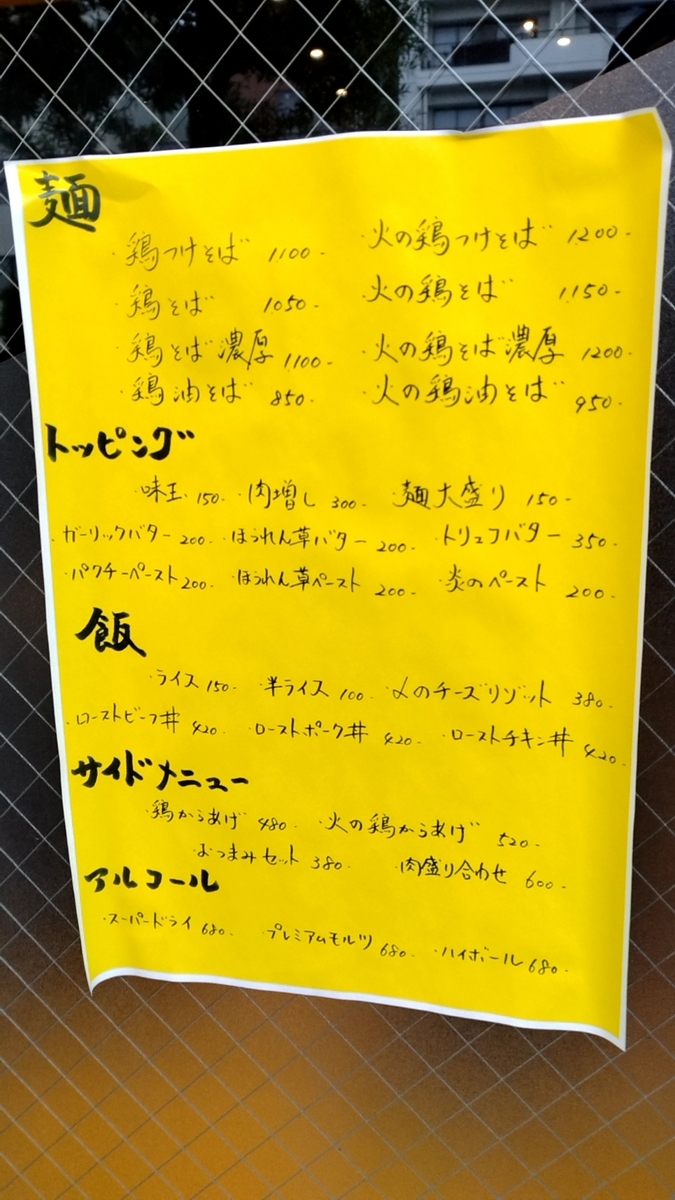 麺
・鶏つけそば 1100- ・火の鶏つけそば 1200-
・鶏そば 1050- ・火の鶏そば 1150-
・鶏そば濃厚 1100- ・火の鶏そば濃厚 1200-
・鶏油そば 850- ・火の鶏油そば 950-
トッピング
・味玉 150- ・肉増し 300- ・麺大盛り 150-
・ガーリックバター 200- ・ほうれん草バター 200- ・トリュフバター 350-
・パクチーペースト 200- ・ほうれん草ペースト 200- ・炎のペースト 200-
飯
・ライス 150- ・半ライス 100- ・〆のチーズリゾット 380-
・ローストビーフ丼 420- ・ローストポーク丼 420- ・ローストチキン丼 420-
サイドメニュー
・鶏からあげ 480- ・火の鶏からあげ 520-
・おつまみセット 380- ・肉盛り合わせ 600-
アルコール
・スーパードライ 680- ・プレミアムモルツ 680- ・ハイボール 680-